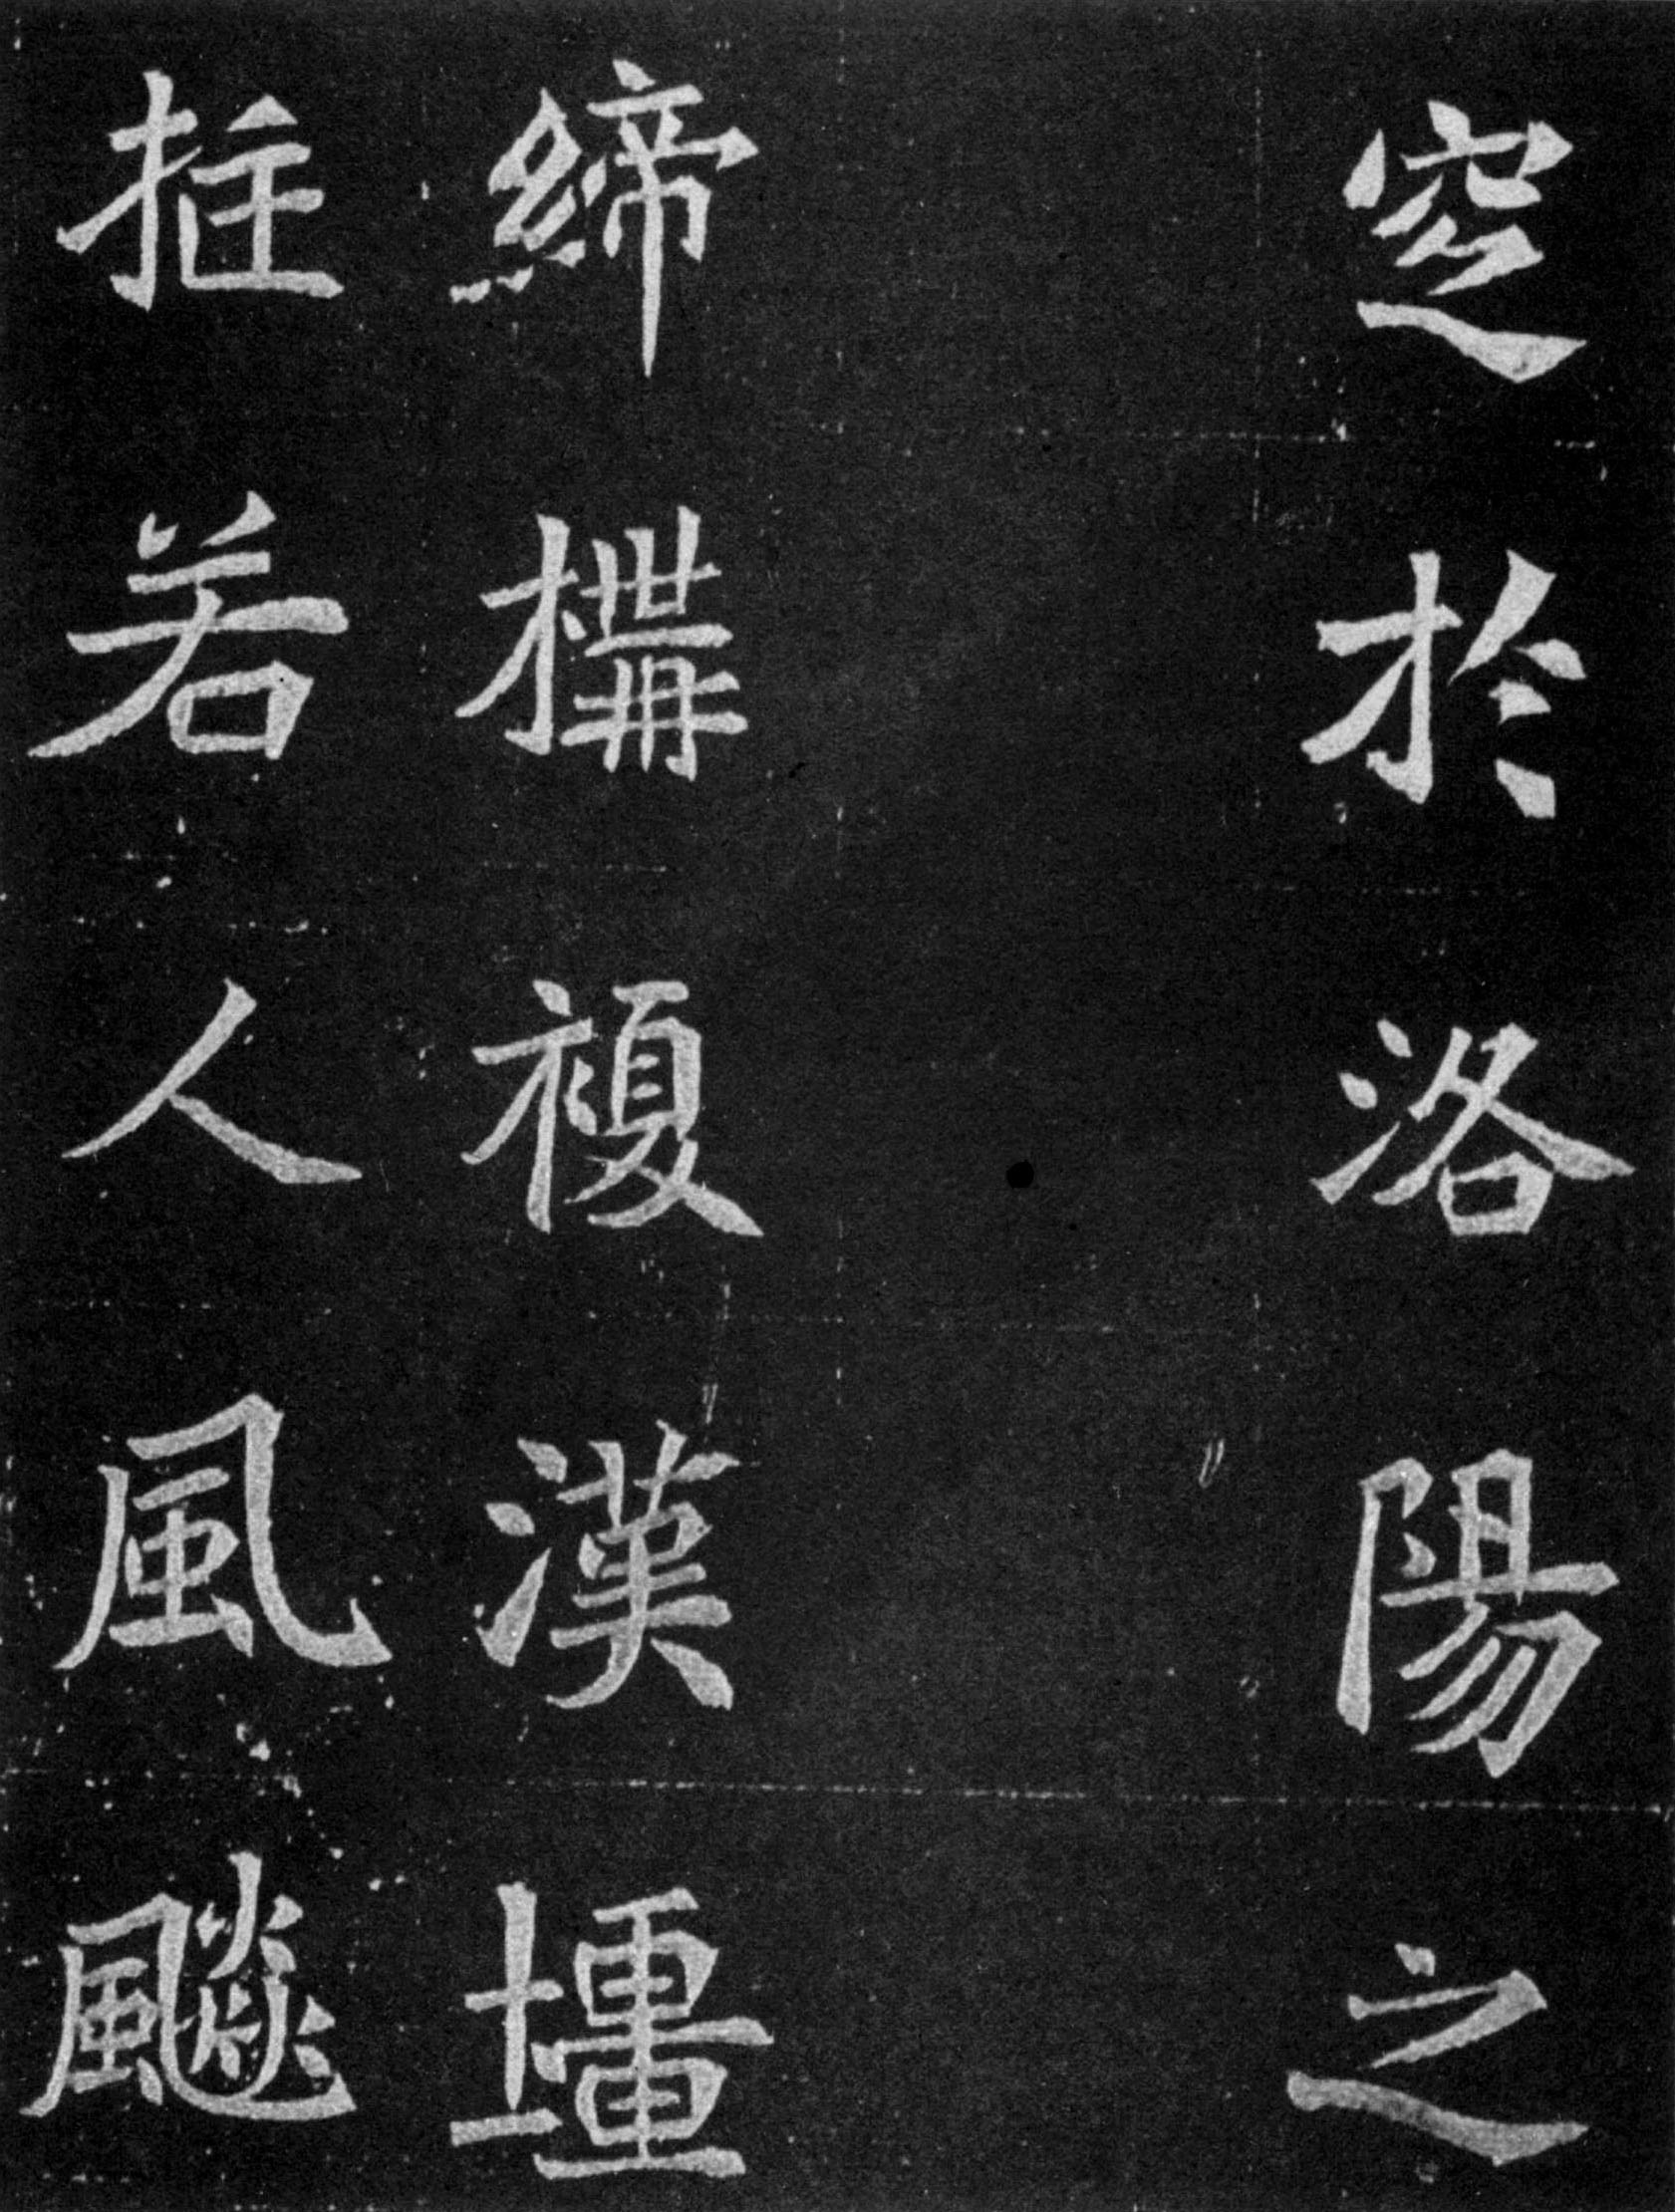 窆於洛陽之
締構複漢壃
挺若人風飈